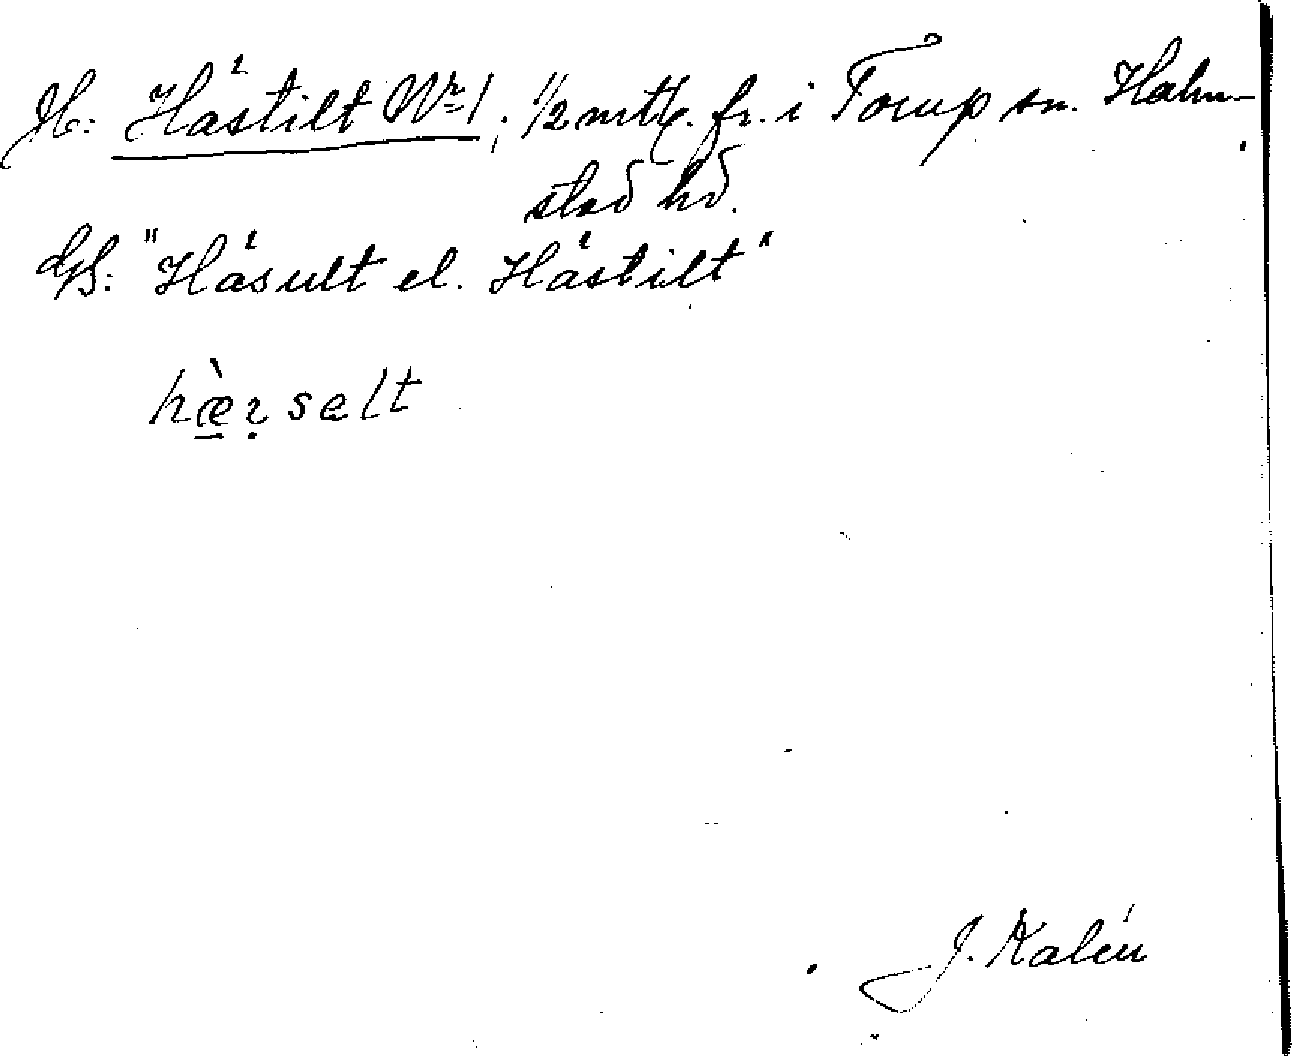 Jb: Håstilt Nr 1; 1/2 mtl. fr. i Torup sn. Halm-
stad hd.
GS: "Håsult el. Håstilt"
hæ̀r̤ selt
J. Kalén